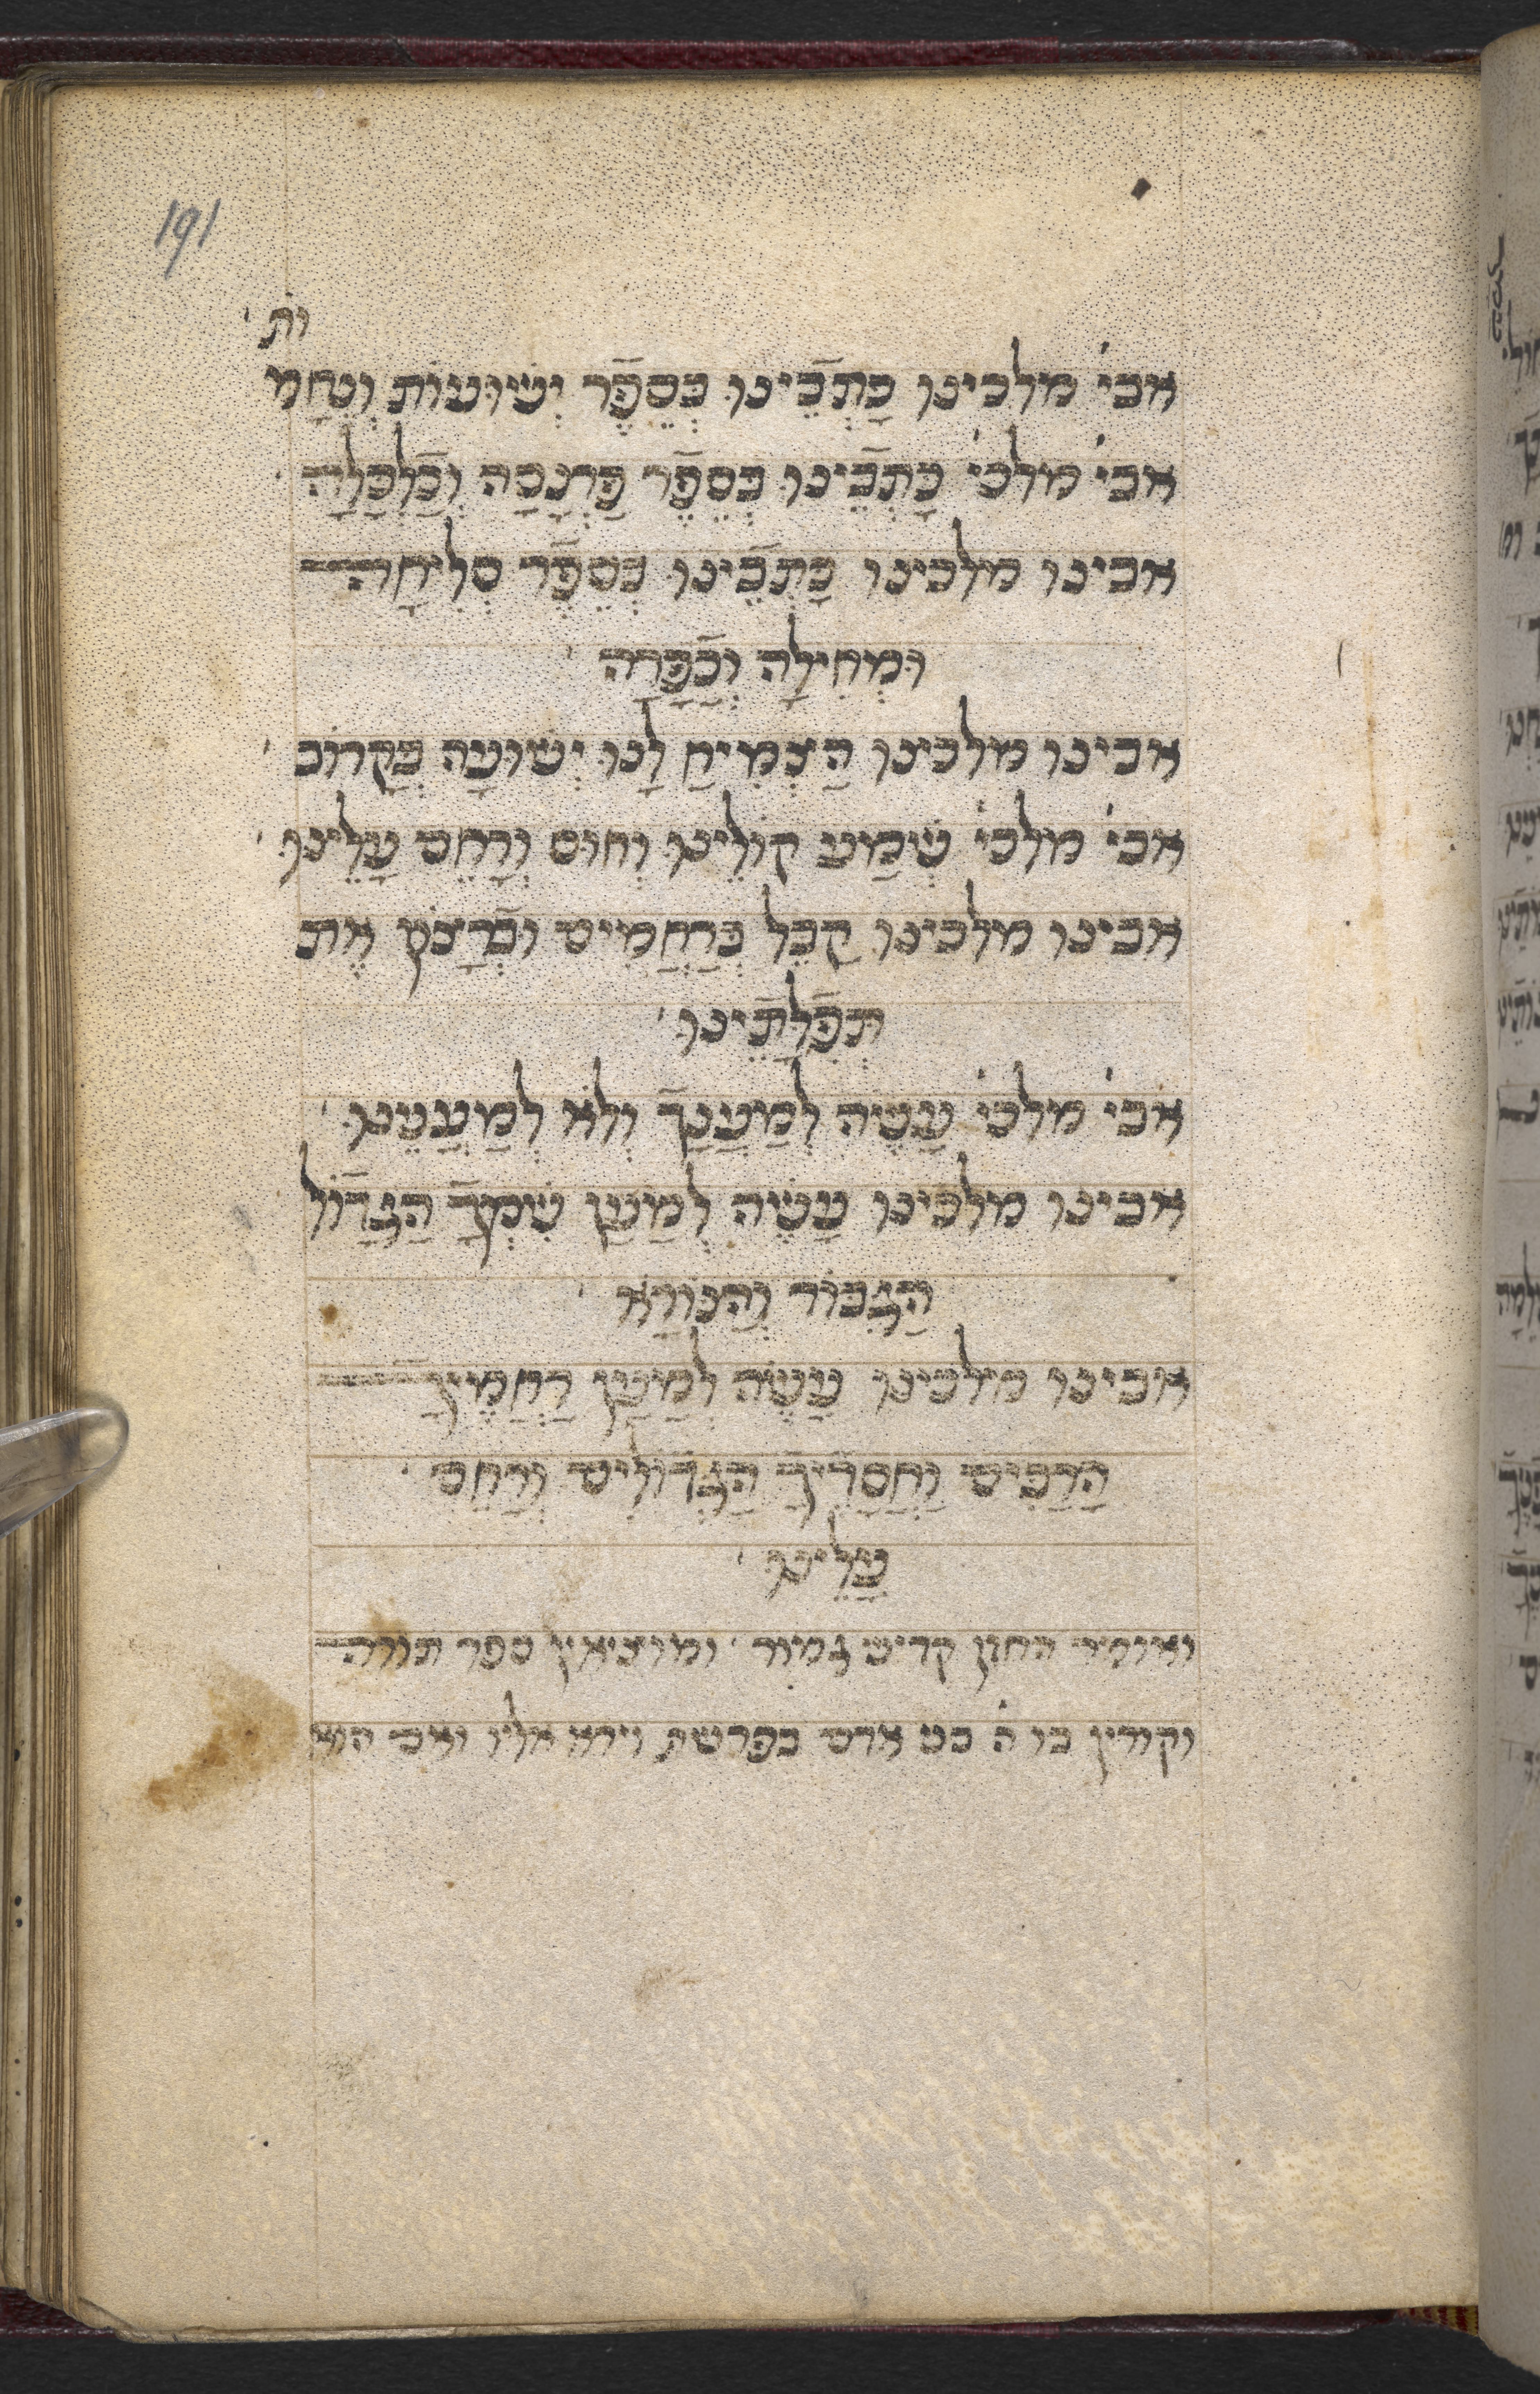 191
ות
אבי׳ מלכינו כָתְבֵֿינוּ בְּסֵפֶֿר יְשׁוּעוֹת וְנֶחָמ
אבי׳ מלכי׳ כָּתְבֵֿינוּ בְּסֵפֶֿר פַּרְנָסָה וְכַֿלְכָּלָה
אבינו מלכינו כָּתְבֵֿינוּ בְּסֵפֶֿר סְלִיחָה
וּמְחִילָה וְכַֿפָּרָה
אבינו מלכינו הַצְמִיחַ לָנוּ יְשׁוּעָה בְּקָרוֹב
אבי׳ מלכי׳ שְׁמַע קוֹלֵינוּ וְחוּס וְרַחֵם עָלֵינוּ
אבינו מלכינו קַבֵּל בְּרַחֲמִים וּבְֿרָצוֹן אֶת
תְּפִֿלָתֵֿינוּ
אבי׳ מלכי׳ עֲשֵׂה לְמַעֲנָךְֿ וְלֹא לְמַעֲנֵינוּ
אבינו מלכינו עֲשֵׂה לְמַעַן שִׁמְךָֿ הַגָּדֿוֹל
הַגִּבּוֹר וְהַנּוֹרָא
אבינו מלכינו עֲשֵׂה לְמַעַן רַחֲמֶיךָֿ
הָרַבִּים וַחֲסָדֶֿיךָֿ הַגְּדֿוֹלִים וְרַחֵם
עָלֵינוּ
ואומר החזן קדיש גמור ומוציאין ספר תורה
וקורין בו ה׳ בני אדם בפרשת וירא אליו ואם הוא